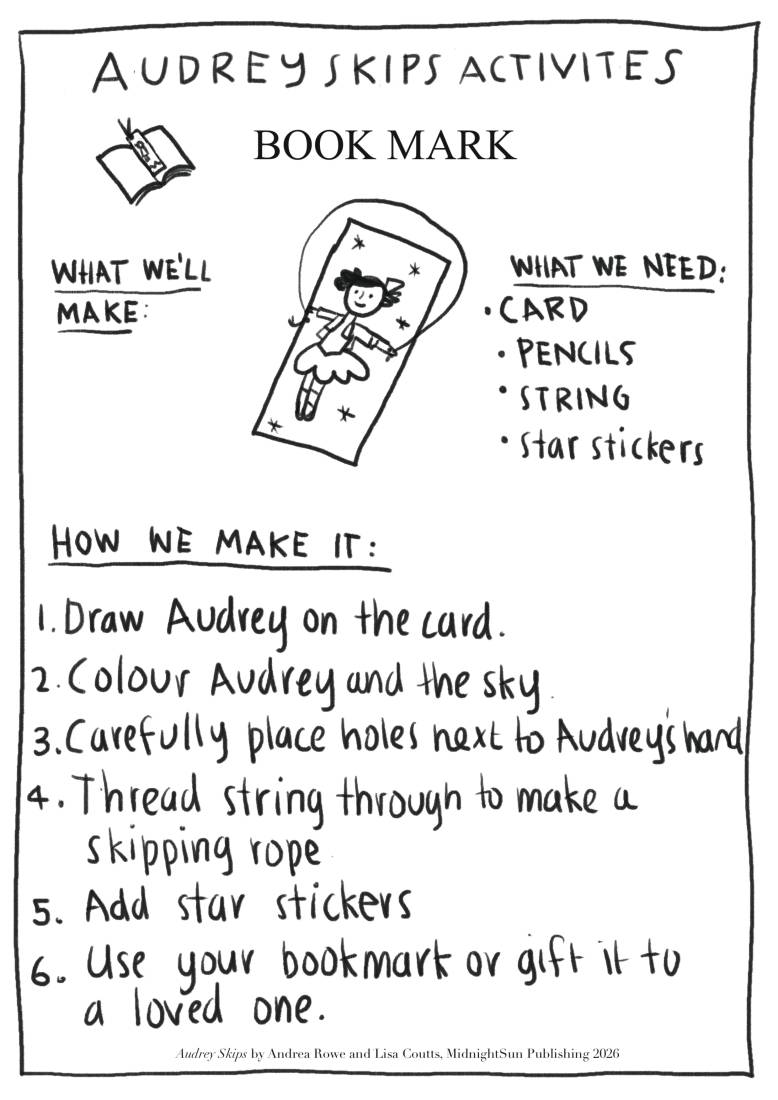 AUDREY SKIPS ACTIVITES
BOOK MARK
WHAT WE'LL
MAKE:
WHAT WE NEED:
• CARD
• PENCILS
• STRING
• Star stickers
HOW WE MAKE IT:
1. Draw Audrey on the card.
2. Colour Audrey and the sky.
3. Carefully place holes next to Audrey's hand
4. Thread string through to make a
skipping rope
5. Add star stickers
6. Use your bookmark or gift it to
a loved one.
Audrey Skips by Andrea Rowe and Lisa Coutts, MidnightSun Publishing 2026